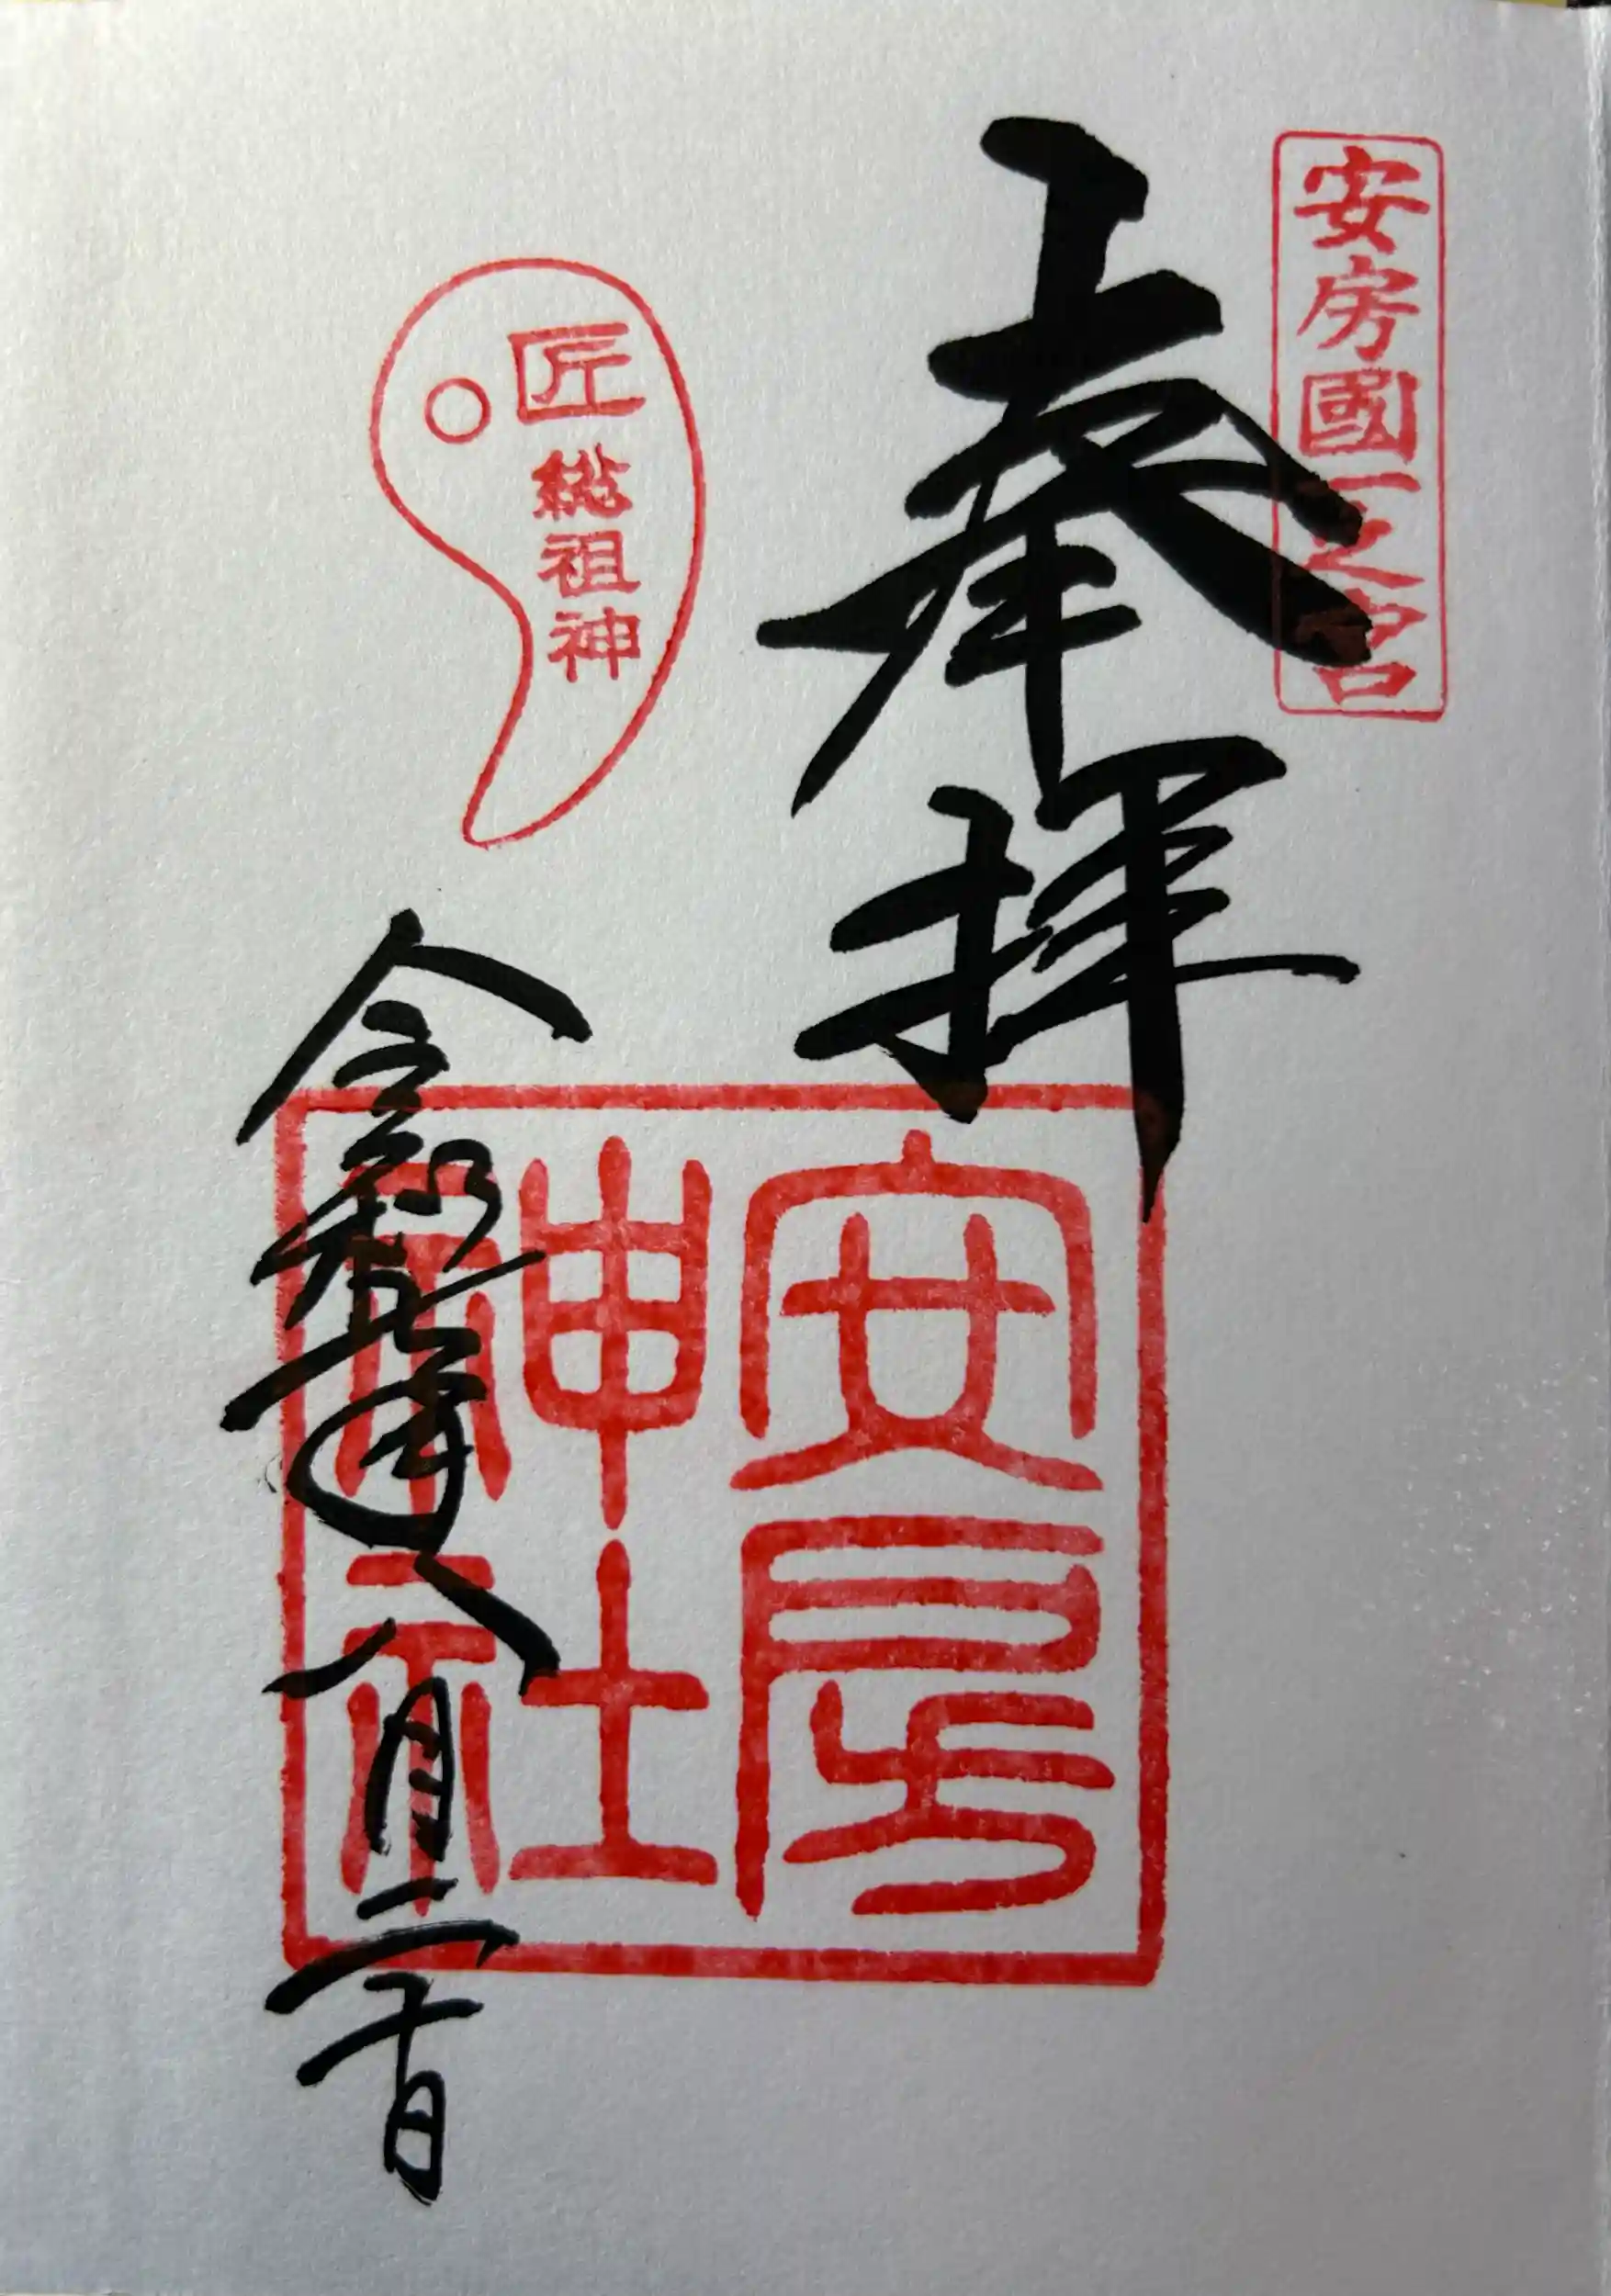 安房國一之宮
奉拝
匠総祖神
安房神社
令和七年八月二十日